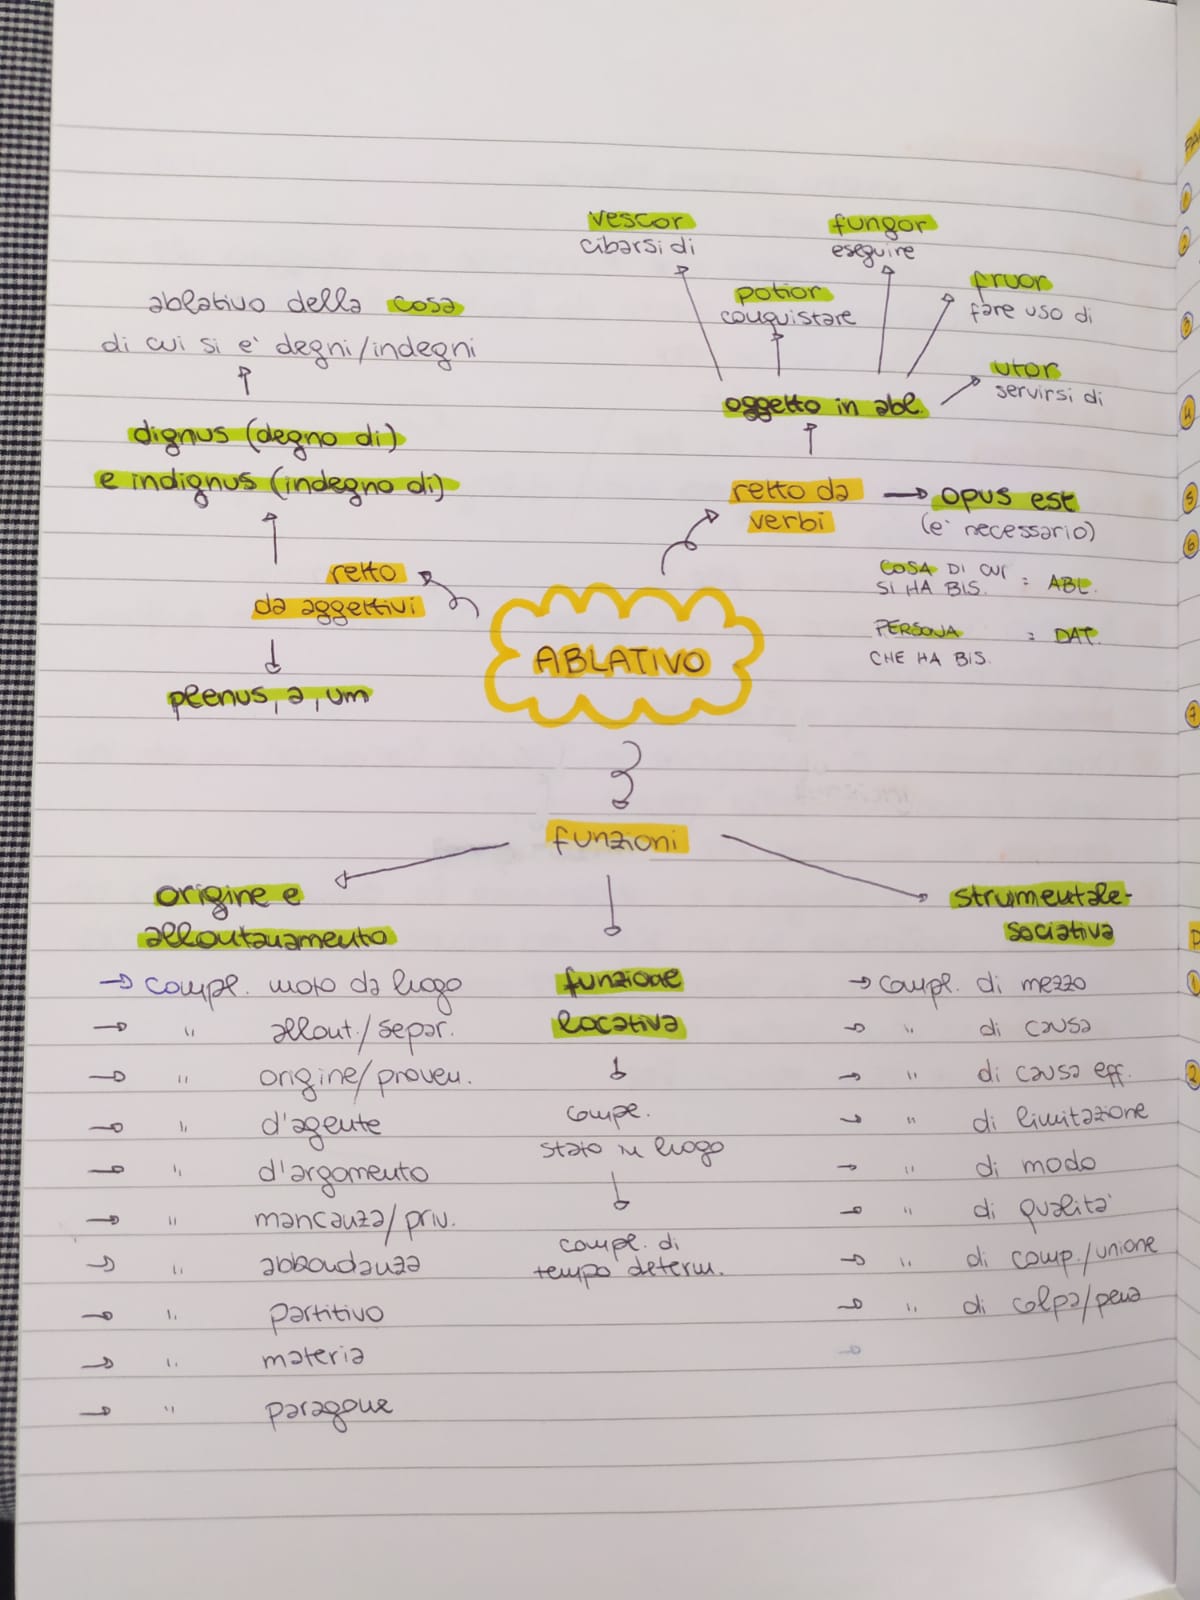 vescor
cibarsi di
fungor
eseguire
potior
conquistare
fruor
fare uso di
utor
servirsi di
oggetto in abl.
ablativo della cosa
di cui si e' degni/indegni
dignus (degno di)
e indignus (indegno di)
retto da
verbi
→ opus est
(e' necessario)
COSA DI CUI
SI HA BIS. : ABL.
PERSONA : DAT.
CHE HA BIS.
retto
da aggettivi
plenus, a, um
ABLATIVO
funzioni
origine e
allontanamento
→ compl. moto da luogo
→ " allont./separ.
→ " origine/proven.
→ " d'agente
→ " d'argomento
→ " mancanza/priv.
→ " abbondanza
→ " partitivo
→ " materia
→ " paragone
funzione
locativa
compl.
stato in luogo
compl. di
tempo determ.
strumentale-
sociativa
→ compl. di mezzo
→ " di causa
→ " di causa eff.
→ " di limitazione
→ " di modo
→ " di qualita'
→ " di comp./unione
→ " di colpa/pena
1
2
3
4
5
6
7
1
2